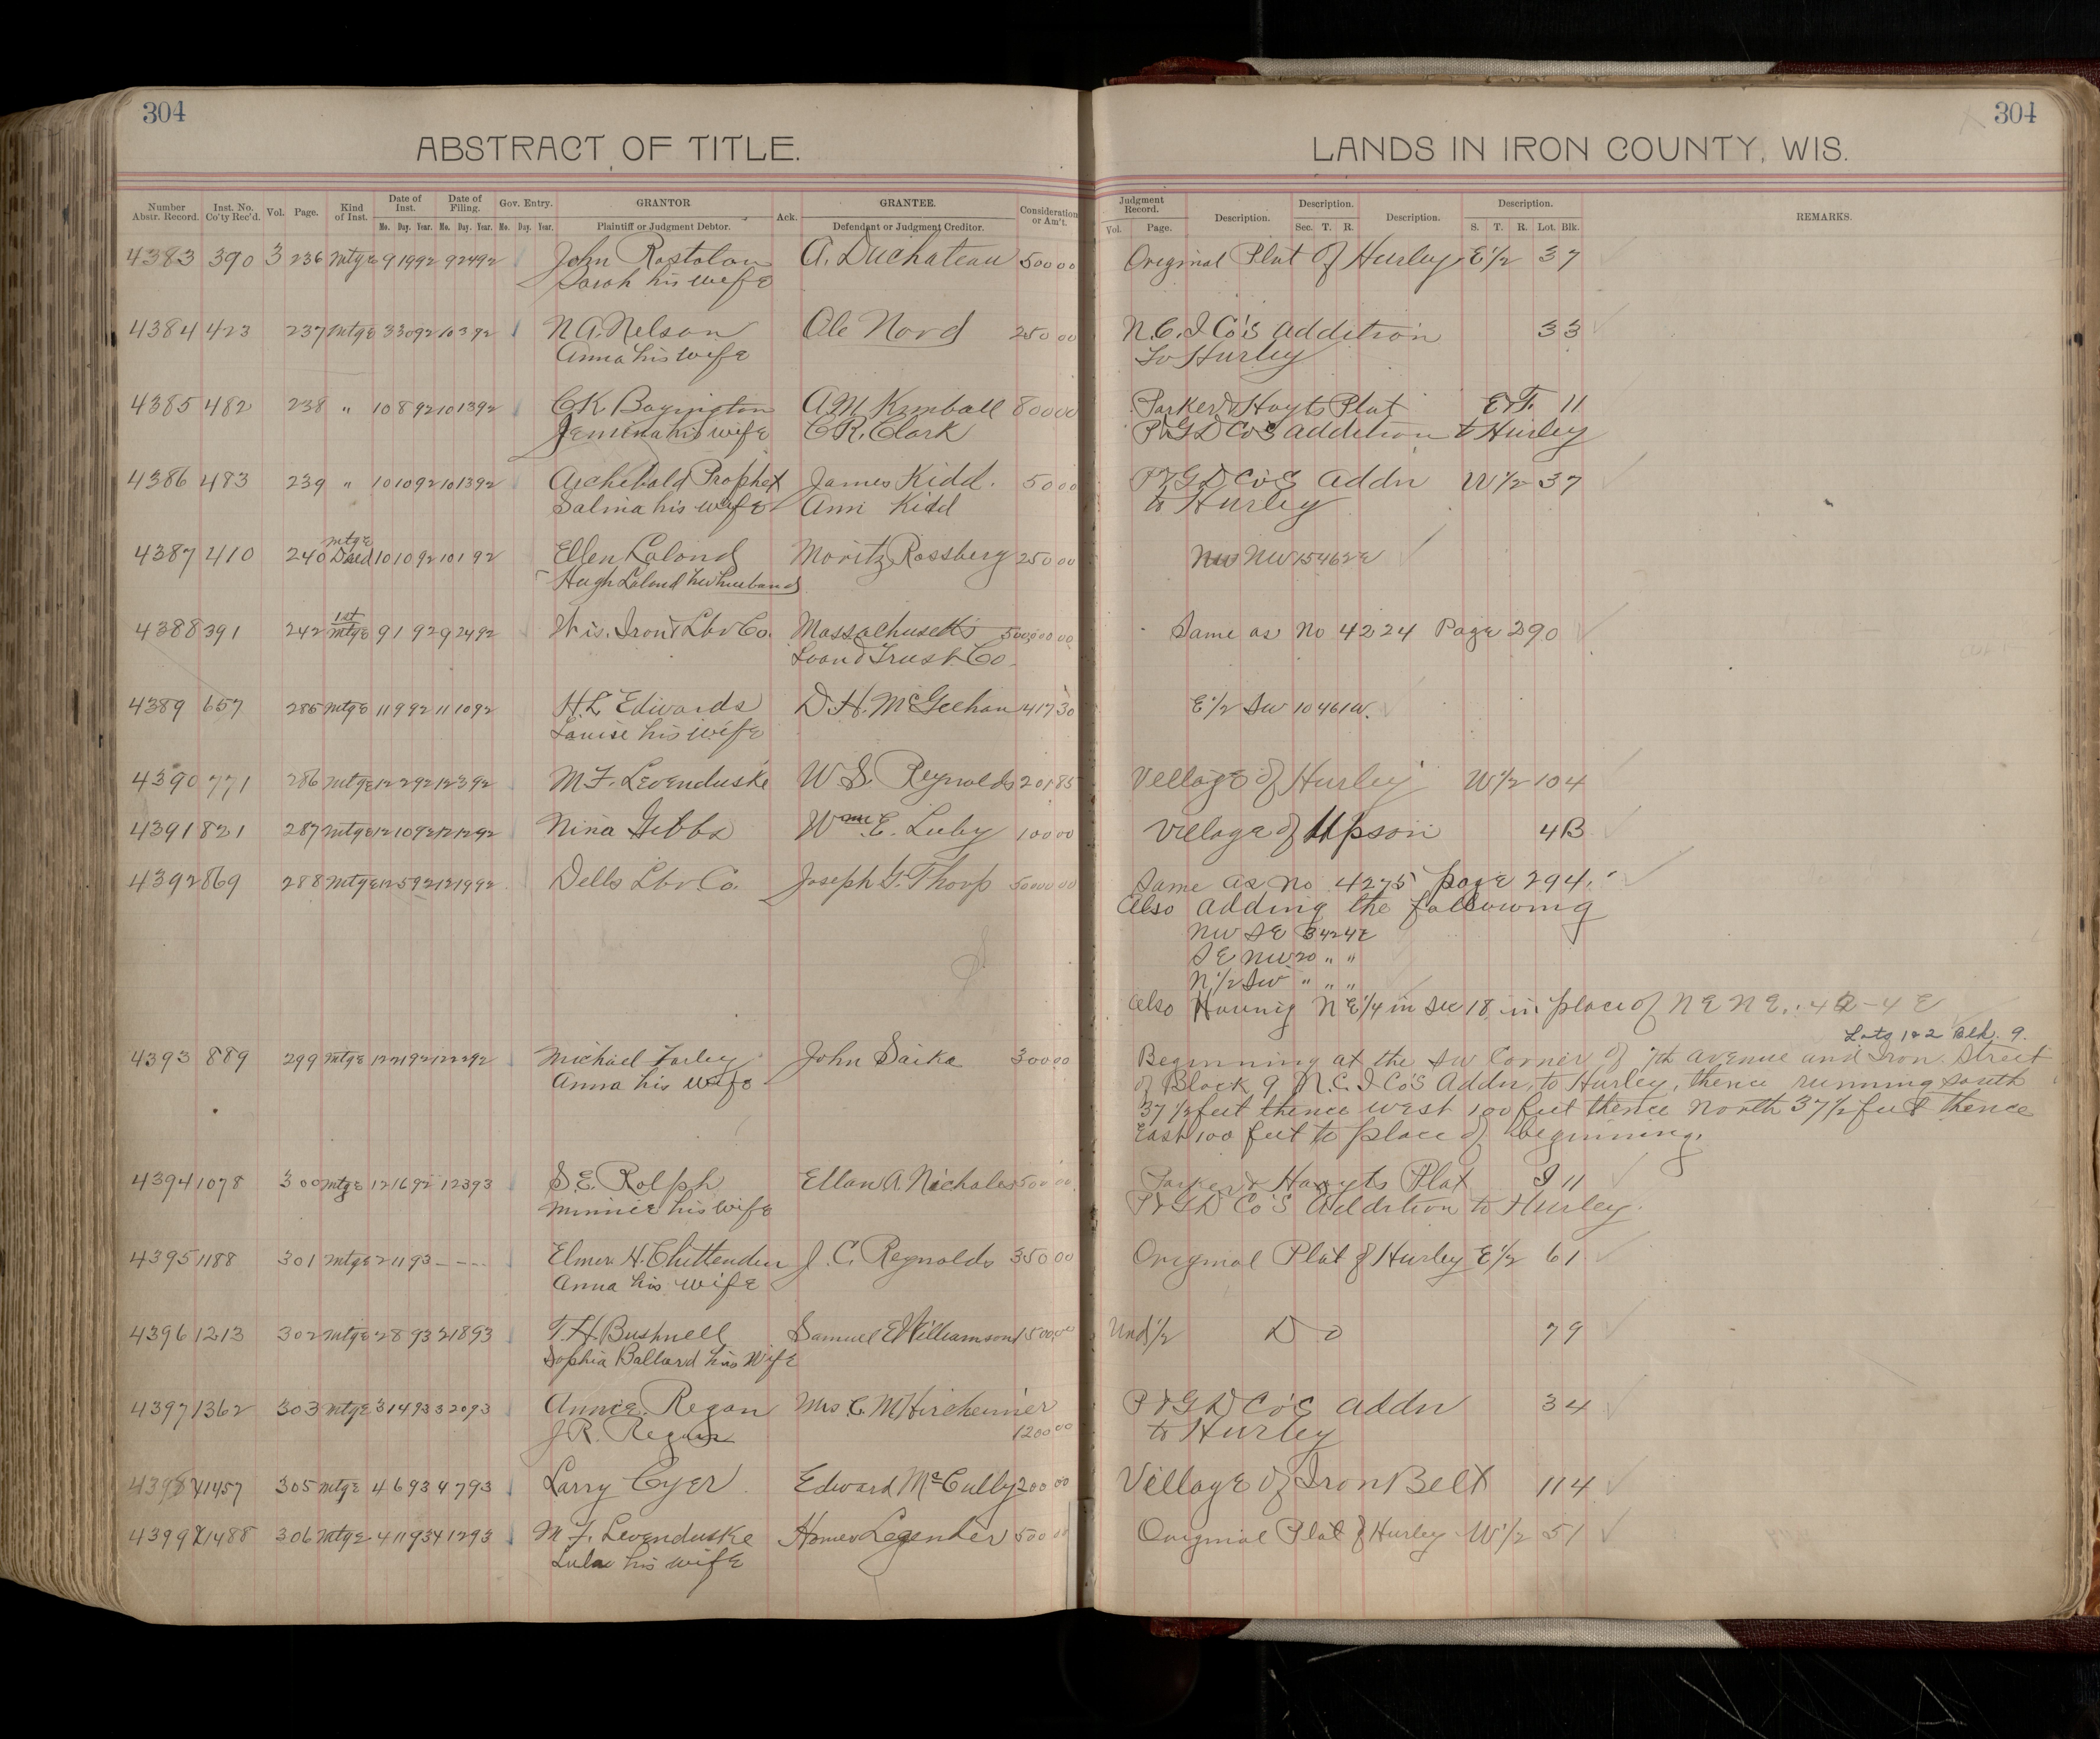 304
304
ABSTRACT OF TITLE.
LANDS IN IRON COUNTY, WIS.
Number Abstr. Record. Inst. No. Co'ty Rec'd. Vol. Page. Kind of Inst. Date of Inst. Date of Filing. Gov. Entry. GRANTOR Ack. GRANTEE. Consideration or Am't.
Mo. Day. Year. Mo. Day. Year. Mo. Day. Year. Plaintiff or Judgment Debtor. Defendant or Judgment Creditor.
Judgment Record. Description. Description. Description. Description. REMARKS.
Vol. Page. Sec. T. R. S. T. R. Lot. Blk.
4383 390 3 236 Mtge 9 19 92 9 24 92 John Rastolan A. Duchateau 500 00 Original Plat of Hurley E 1/2 37
Sarah his wife
4384 423 237 Mtge 3 30 92 10 3 92 N. A. Nelson Ole Nord 250 00 N.C.I Co's addition 33
Anna his wife To Hurley
4385 482 238 " 10 8 92 10 13 92 C K Boyington A.M. Kimball 800 00 Parker & Hoyts Plat 11
Jemima his wife C R. Clark P&GD Co's addition to Hurley
4386 483 239 " 10 10 92 10 13 92 Archibald Prophet James Kidd. 50 00 P&GD Co's Addn W 1/2 37
Salina his wife Ann Kidd to Hurley
mtge
4387 410 240 Deed 10 10 92 10 1 92 Ellen Lalond Moritz Rossberg 250 00 NW NW 15 46 2 E
Hugh Lalond her husband
1st
4388 391 242 mtge 9 1 92 9 24 92 Wis. Iron & Lbr Co. Massachusetts 500,000 00 Same as No 4224 Page 290
Loan & Trust Co.
4389 657 285 Mtge 11 9 92 11 10 92 H.L Edwards D. H. McGeehan 417 30 E 1/2 SW 10 46 1 W.
Louise his wife
4390 771 286 Mtge 12 2 92 12 3 92 M. F. Levenduske W. S. Reynolds 201 85 Village of Hurley W 1/2 104
4391 821 287 Mtge 12 10 92 12 12 92 Nina Gibbs Wm E. Luby 100 00 Village of Upson 4 B
4392 869 288 Mtge 12 5 92 12 19 92 Dells Lbr Co. Joseph G. Thorp 50000 00 Same as No 4275 page 294.
Also adding the following
NW SE 3 42 4 E
SE NW 20 " "
N 1/2 SW " " "
Also Having N E 1/4 in Sec 18 in place of N E N E. 42-4 E
Lots 1 & 2 Blk. 9.
4393 889 299 Mtge 12 21 92 12 22 92 Michael Farley John Saika 300 00 Beginning at the SW Corner of 7th avenue and Iron Street
Anna his wife of Block 9 N.C.I Co's Addn, to Hurley, thence running south
37 1/2 feet thence west 100 feet thence North 37 1/2 feet thence
East 100 feet to place of beginning.
4394 1078 300 Mtge 12 16 92 1 23 93 S.E. Rolph Ellen A. Nichols 500 00 Parker & Hoyts Plat 11
Minnie his wife P&GD Co's Addition to Hurley.
4395 1188 301 Mtge 2 11 93 - - - Elmer H. Chittenden J. C. Reynolds 350 00 Original Plat of Hurley E 1/2 61
Anna his wife
4396 1213 302 Mtge 2 8 93 2 18 93 T. H. Bushnell Samuel E Williamson 1500 00 Und 1/2 D o 79
Sophia Ballard his wife
4397 1362 303 Mtge 3 14 93 3 20 93 Annie Regan Mrs C. M Hircheimer P&GD Co's Addn 34
J R. Regan 1200 00 to Hurley
4398 1457 305 Mtge 4 6 93 4 7 93 Larry Cyer Edward McCully 200 00 Village of Iron Belt 114
4399 1488 306 Mtge 4 11 93 4 12 93 M. F. Levenduske Homer Legender 500 00 Original Plat of Hurley W 1/2 51
Lula his wife